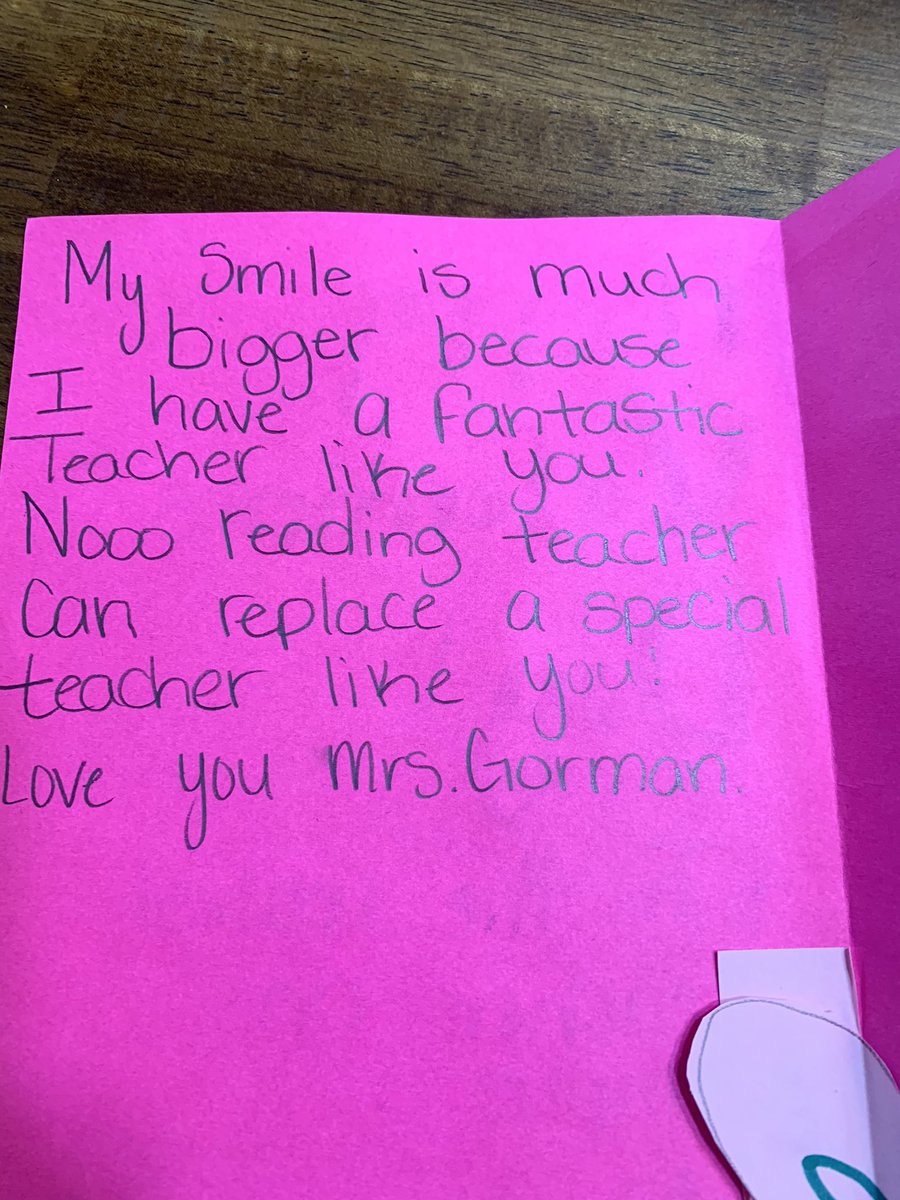 My Smile is much
bigger because
I have a fantastic
Teacher like you.
Nooo reading teacher
Can replace a special
teacher like you!
Love you Mrs. Gorman.